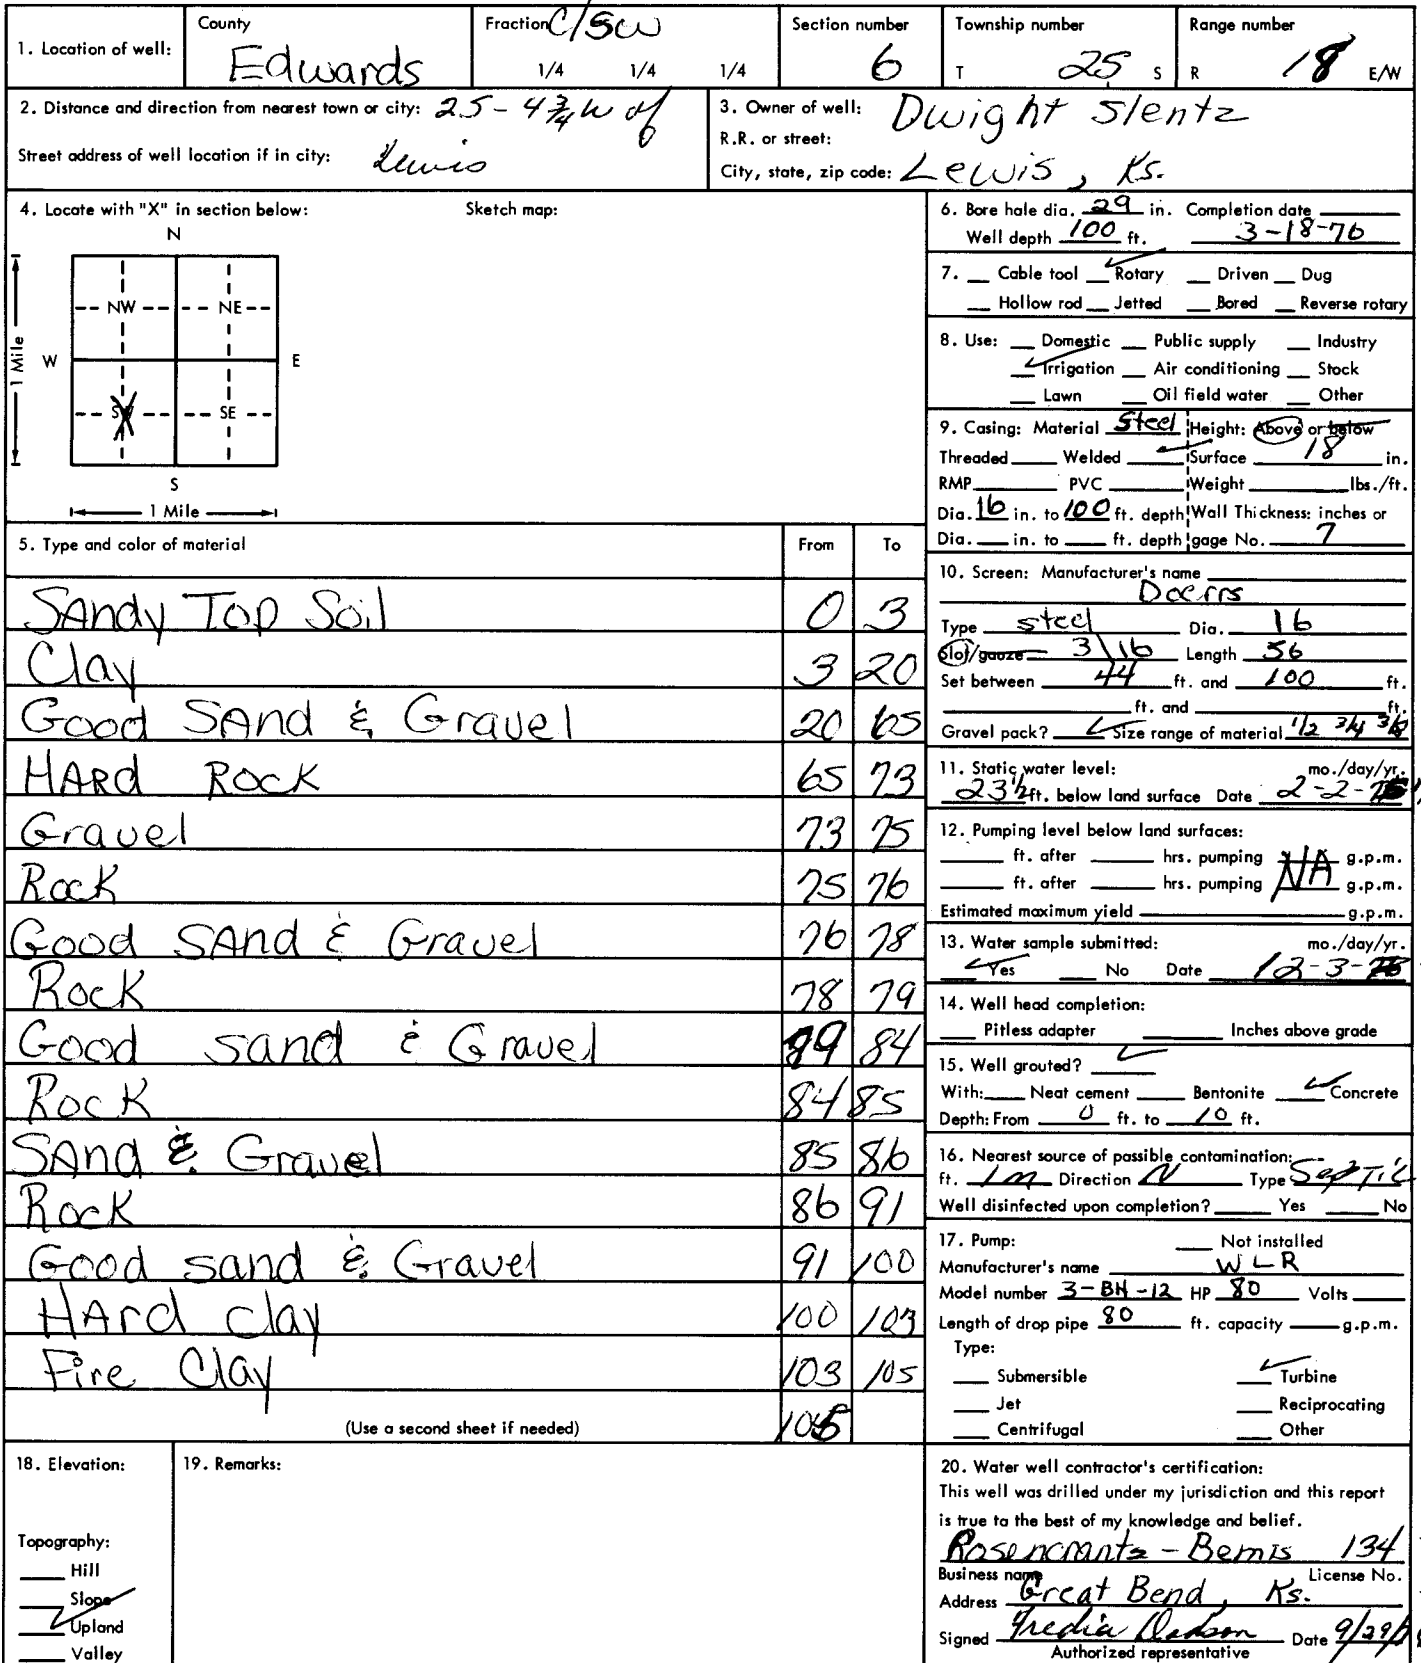 1. Location of well: County Edwards Fraction C/SW 1/4 1/4 1/4 Section number 6 Township number T 25 S Range number R 18 E/W
2. Distance and direction from nearest town or city: 2S - 4 3/4 W of
Street address of well location if in city: Lewis
3. Owner of well: Dwight Slentz
R.R. or street:
City, state, zip code: Lewis, Ks.
4. Locate with "X" in section below: Sketch map:
N
NW NE
W E
1 Mile
SW SE
S
1 Mile
5. Type and color of material From To
Sandy Top Soil 0 3
Clay 3 20
Good Sand & Gravel 20 65
Hard Rock 65 73
Gravel 73 75
Rock 75 76
Good Sand & Gravel 76 78
Rock 78 79
Good sand & Gravel 79 84
Rock 84 85
Sand & Gravel 85 86
Rock 86 91
Good sand & Gravel 91 100
Hard clay 100 103
Fire Clay 103 105
(Use a second sheet if needed) 105
6. Bore hole dia. 29 in. Completion date
Well depth 100 ft. 3-18-76
7. Cable tool ✓ Rotary Driven Dug
Hollow rod Jetted Bored Reverse rotary
8. Use: Domestic Public supply Industry
✓ Irrigation Air conditioning Stock
Lawn Oil field water Other
9. Casing: Material Steel Height: Above or below
Threaded Welded ✓ Surface 18 in.
RMP PVC Weight lbs./ft.
Dia. 16 in. to 100 ft. depth Wall Thickness: inches or
Dia. in. to ft. depth gage No. 7
10. Screen: Manufacturer's name
Doerrs
Type steel Dia. 16
Slot/gauze 3\16 Length 56
Set between 44 ft. and 100 ft.
ft. and ft.
Gravel pack? ✓ Size range of material 1/2 3/4 3/8
11. Static water level: mo./day/yr.
23 1/2 ft. below land surface Date 2-2-
12. Pumping level below land surfaces:
ft. after hrs. pumping NA g.p.m.
ft. after hrs. pumping g.p.m.
Estimated maximum yield g.p.m.
13. Water sample submitted: mo./day/yr.
✓ Yes No Date 12-3-
14. Well head completion:
Pitless adapter Inches above grade
15. Well grouted? ✓
With: Neat cement Bentonite ✓ Concrete
Depth: From 0 ft. to 10 ft.
16. Nearest source of possible contamination:
ft. 1m Direction N Type Septic
Well disinfected upon completion? Yes No
17. Pump: Not installed
Manufacturer's name WLR
Model number 3-BH-12 HP 80 Volts
Length of drop pipe 80 ft. capacity g.p.m.
Type:
Submersible ✓ Turbine
Jet Reciprocating
Centrifugal Other
18. Elevation:
Topography:
Hill
Slope
✓ Upland
Valley
19. Remarks:
20. Water well contractor's certification:
This well was drilled under my jurisdiction and this report
is true to the best of my knowledge and belief.
Rosencrantz - Bemis 134
Business name License No.
Address Great Bend, Ks.
Signed Fredia Date 9/29/
Authorized representative